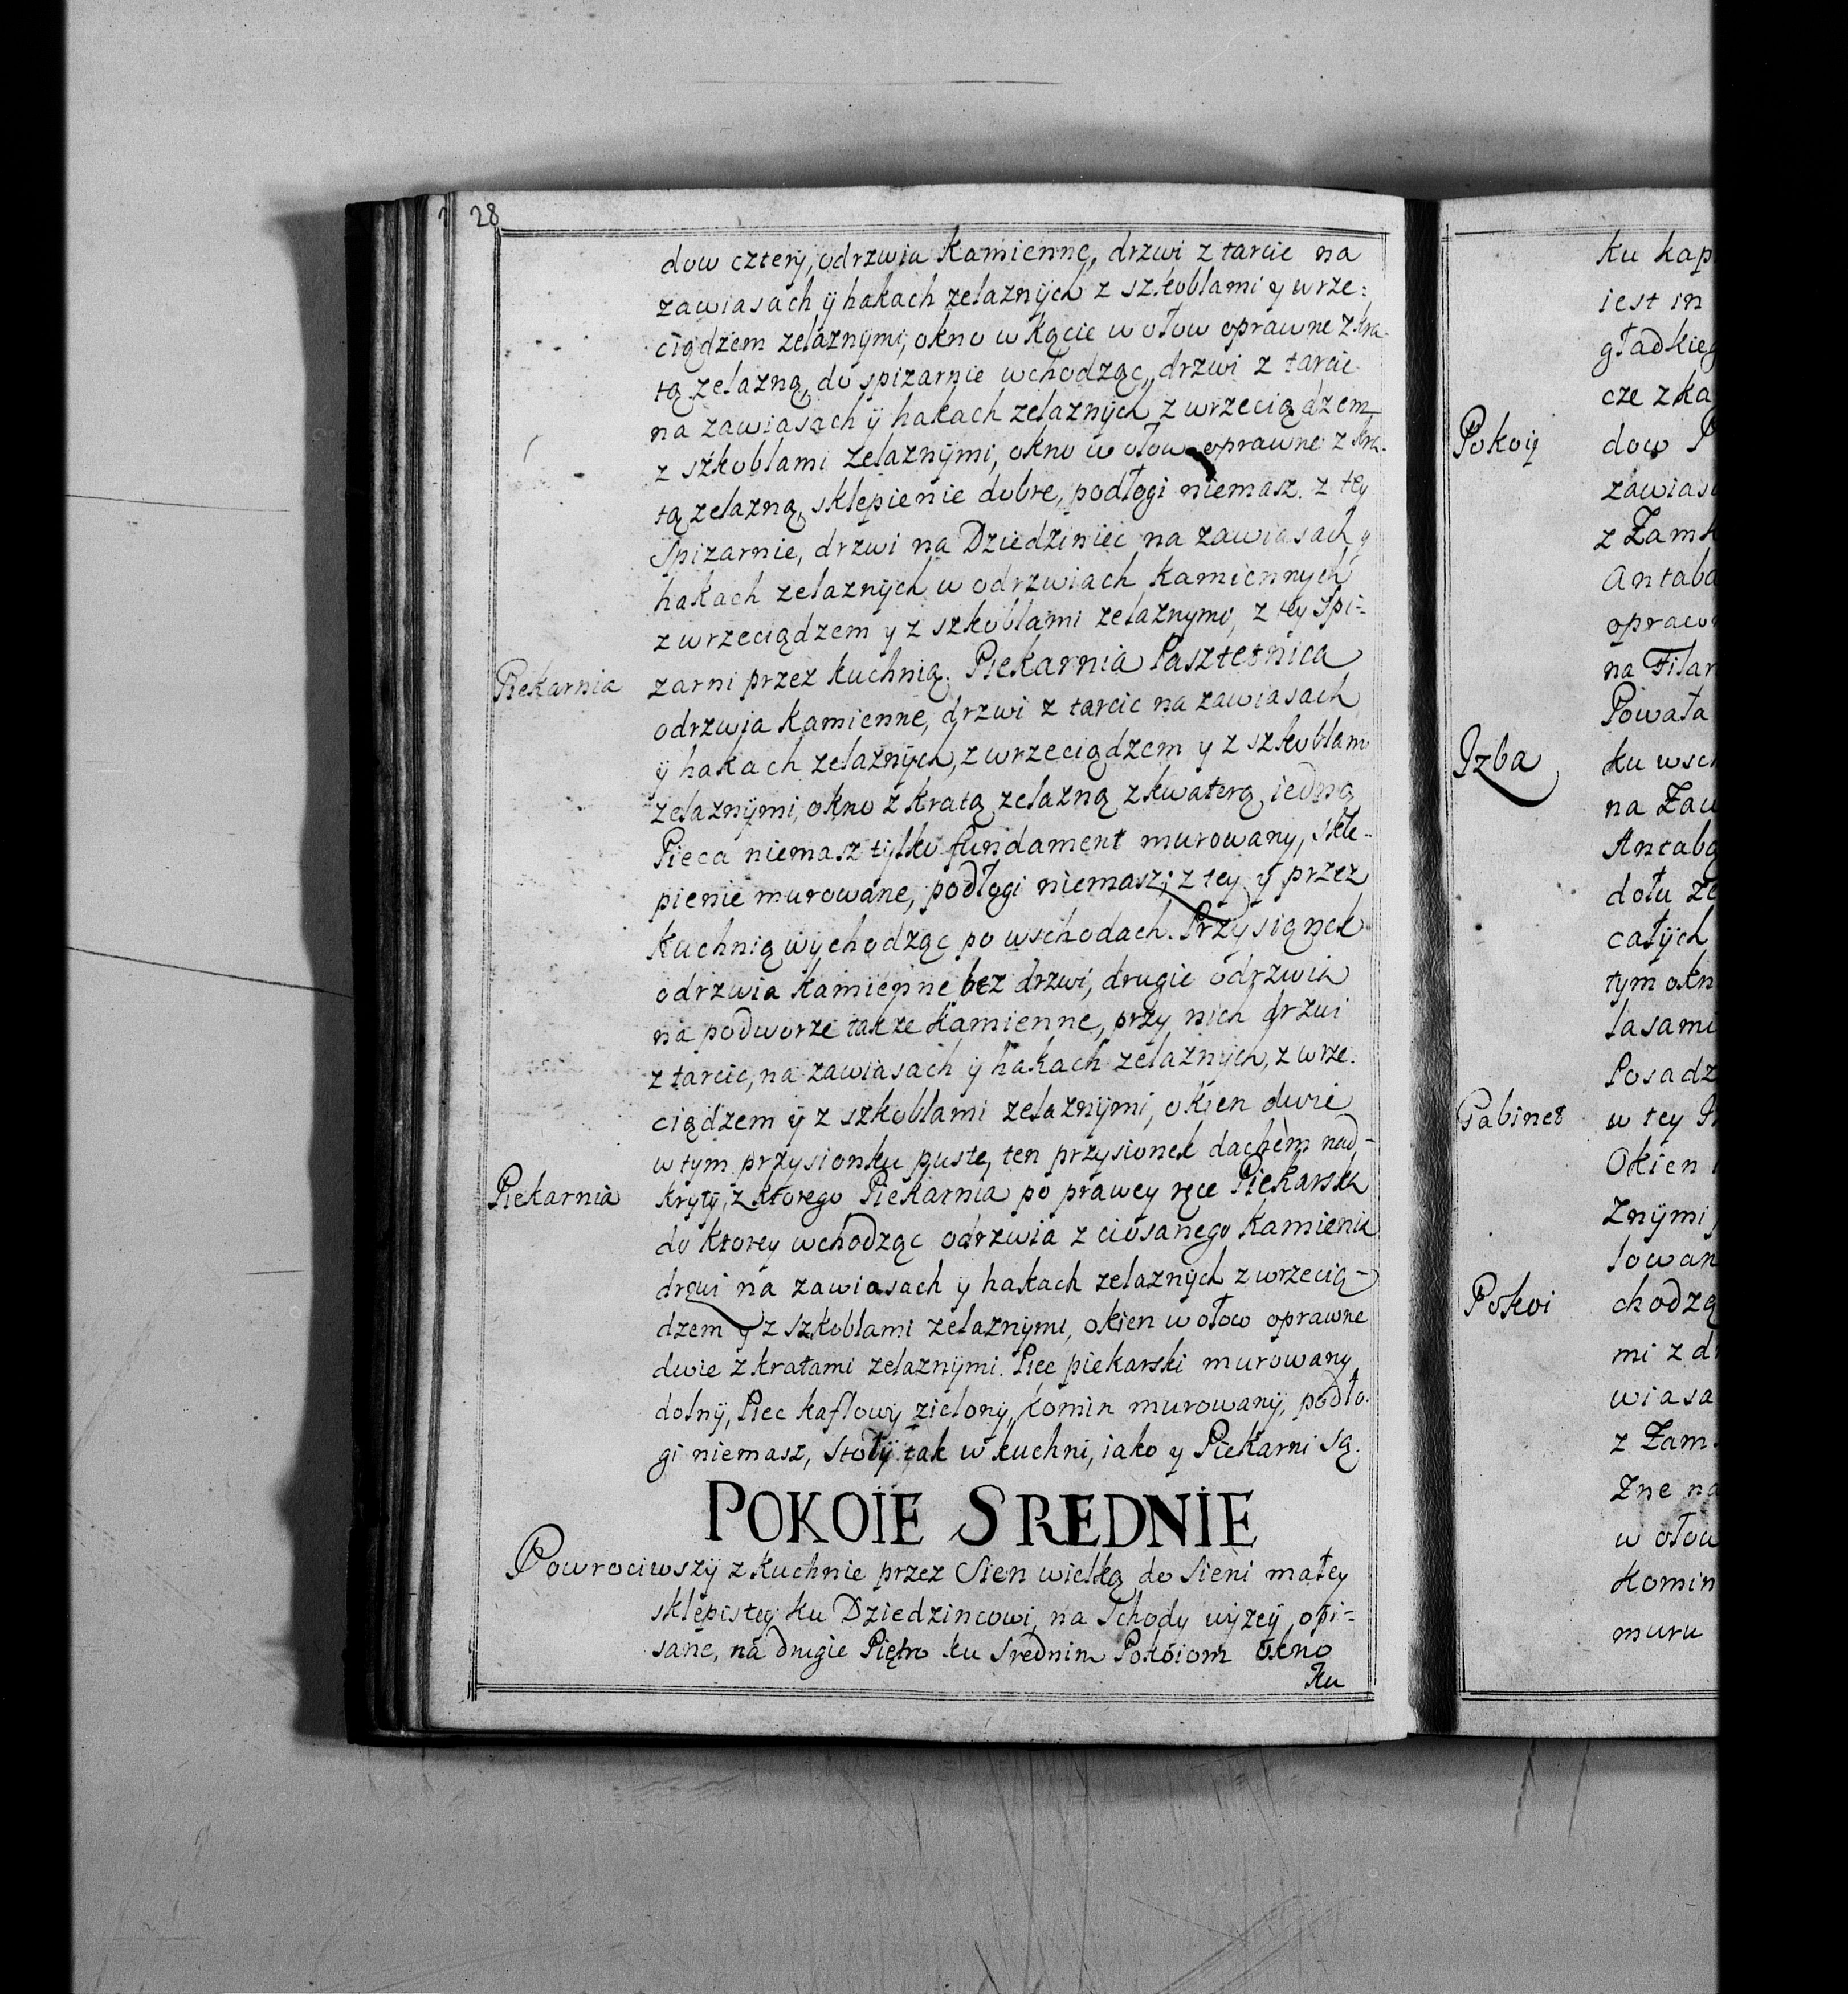 28
dow cztery, odrzwia Kamienne, drzwi z tarcic na
zawiasach ÿ hakach zelaznÿch z szkoblami y wrze:
ciądzem zelaznÿmi, okno w kącie w ołow oprawne z kra-
tą zelazną, do spizarnie wchodząc, drzwi z tarcic
na zawiasach ÿ hakach zelaznÿch z wrzeciądzem
z szkoblami zelaznÿmi, okno w ołow oprawne z kra-
tą zelazną, sklepienie dobre, podłogi niemasz. z tey
Spizarnie, drzwi na Dziedziniec na zawiasach y
hakach zelaznÿch w odrzwiach kamiennych
z wrzeciądzem y z szkoblami zelaznymi, z tey Spi-
Piekarnia zarni przez kuchnią. Piekarnia Pasztetnica
odrzwia kamienne, drzwi z tarcic na zawiasach
ÿ hakach zelaznÿch, z wrzeciądzem y z szkoblami
zelaznÿmi, okno z kratą zelazną z kwaterą iedną
Pieca niemasz tylko fundament murowany, skle-
pienie murowane, podłogi niemasz; z tey y przez
Kuchnią wychodząc po wschodach. Przysiąnek
odrzwia kamienne bez drzwi, drugie odrzwia
na podworze takze kamienne, przy nich drzwi
z tarcic, na zawiasach ÿ hakach zelaznÿch, z wrze-
ciądzem ÿ z szkoblami zelaznÿmi, okien dwie
w tym przysionku puste, ten przysionek dachem nad-
Piekarnia kryty, z ktorego Piekarnia po prawey ręce Piekarska
do ktorey wchodząc odrzwia z ciosanego kamienia
drzwi na zawiasach y hakach zelaznÿch z wrzecią-
dzem y z szkoblami zelaznymi, okien w ołow oprawne
dwie z kratami zelaznÿmi. Piec piekarski murowany
dolnÿ, Piec kaflowy zielony, komin murowanÿ, podło-
gi niemasz, stołÿ tak w kuchni, iako y Piekarni są.
POKOIE SREDNIE
Powrociwszÿ z kuchnie przez Sien wielką do Sieni małey
sklepistey ku Dziedzincowi, na Schody wÿzeÿ opi-
sane, na drugie Piętro ku Srednim Pokoiom okno
Ku
ku kap
iest in
gładkieg
cze z ka
Pokoÿ dow P
zawias
z Zamk
Antaba
opraw
na Filar
Powała
Izba ku wsch
na Zaw
Antabą
dołu ze
całÿch
tym okn
lasami
Posadz
Gabinet w tey
Okien
Znÿmi
lowan
Pokoi chodzą
mi z d
wiasa
z Zam
Zne na
w ołow
Komin
muru